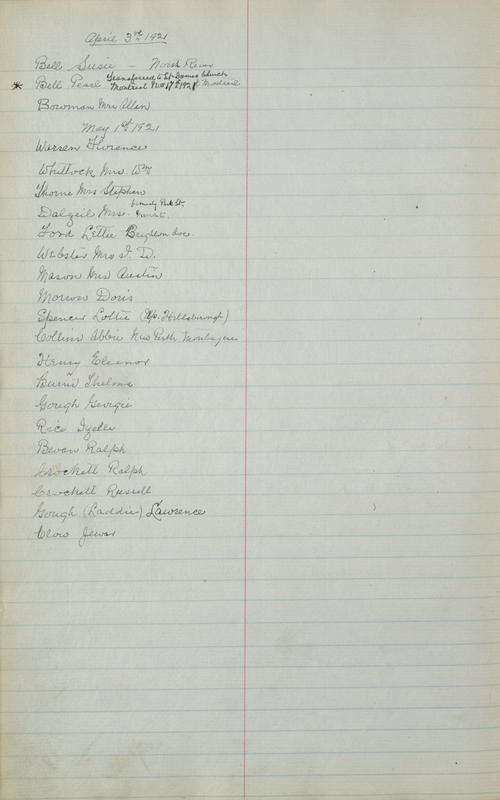 April 3rd 1921
Bell Susie - North River
* Bell Pearl Transferred to St. James Church Montreal Nov 17th 1921
Bowman Mrs Allen
May 1st 1921
Warren Florence
Whitlock Mrs. Wm
Thorne Mrs Stephen
Dalzeil Mrs. formerly Park St.
Ford Lettie Brighton Ave.
Webster Mrs J. D.
Mason Mrs Austin
Morrow Doris
Spencer Lottie (Hillsborough)
Collins Abbie Mrs
Henry Eleanor
Burns Thelma
Gough Georgie
Rice
Bevan Ralph
Crockett Ralph
Crockett Russell
Gough (Laddie) Lawrence
Clow